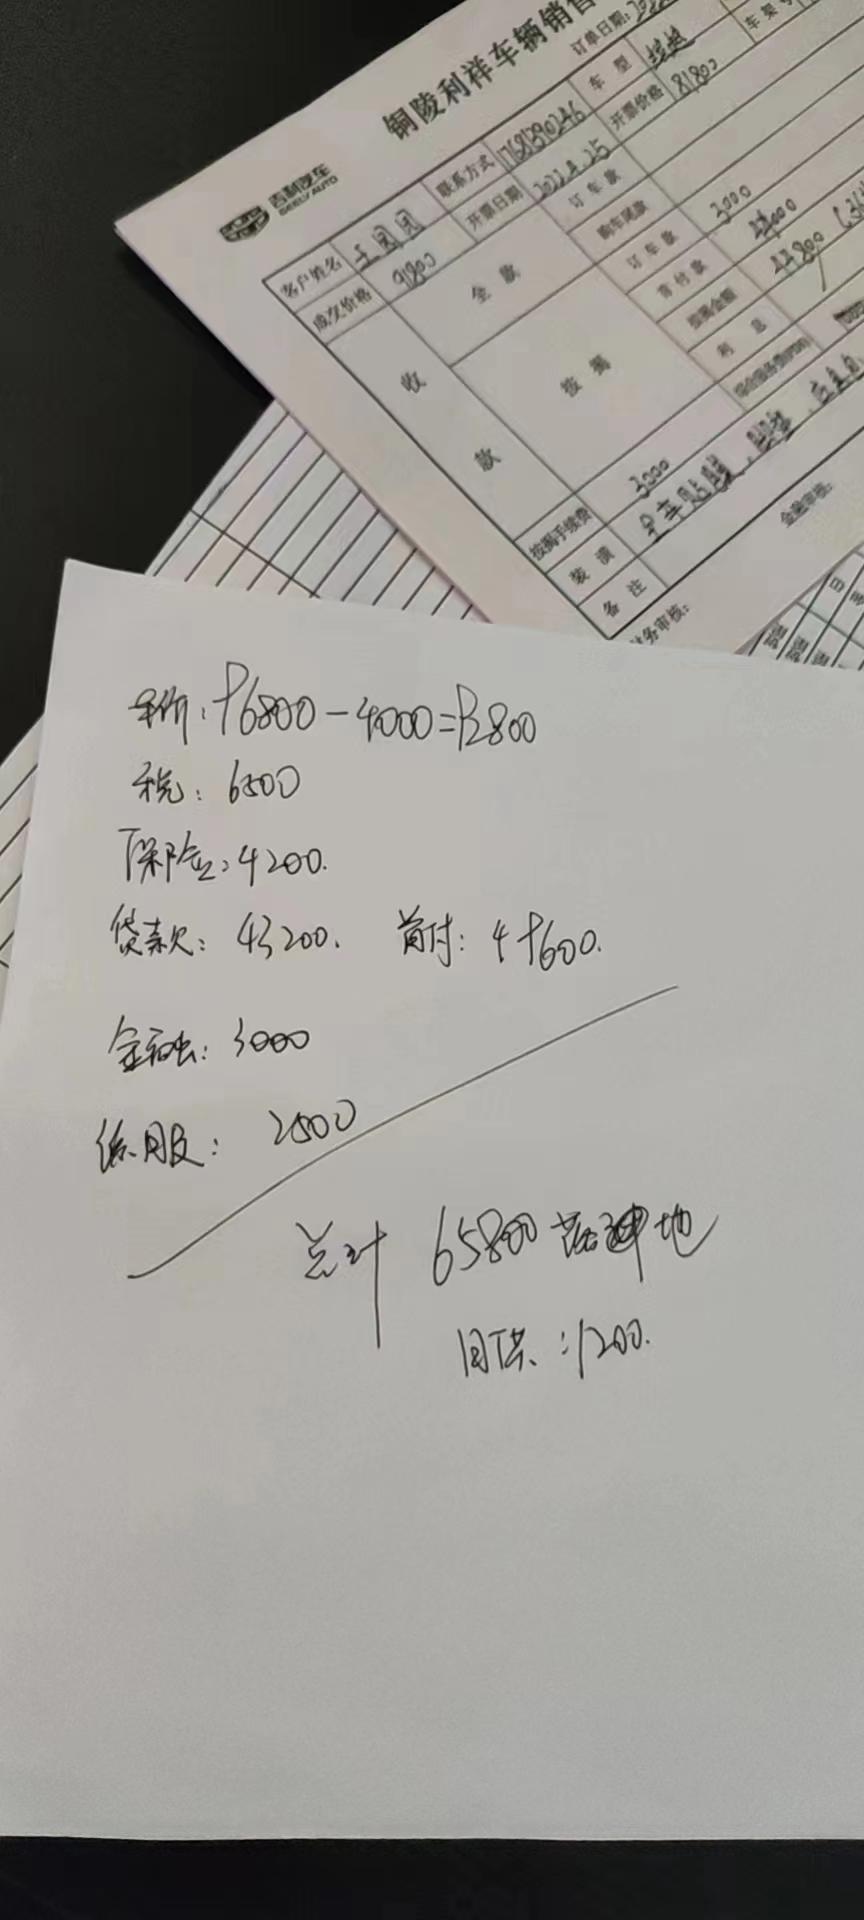 铜陵利祥车辆销售
订单日期:202
吉利汽车
GEELY AUTO
客户姓名 王凤凤 联系方式 17681390246 车型 缤越 车架号
成交价格 91800 开票日期 2022.4.25 开票价格 81800
收款 全款 订车款
购车尾款
按揭 订车款 3000
首付款 44000
按揭金额 44800
利息
按揭手续费 3000
装潢 全车贴膜、脚垫、
备注
财务审核: 金融审核:
车价:96800-4000=92800
税:6500
保险:4200.
贷款:43200. 首付:49600.
金融:3000
综服:2500
总计 65800 落地
月供:1200.